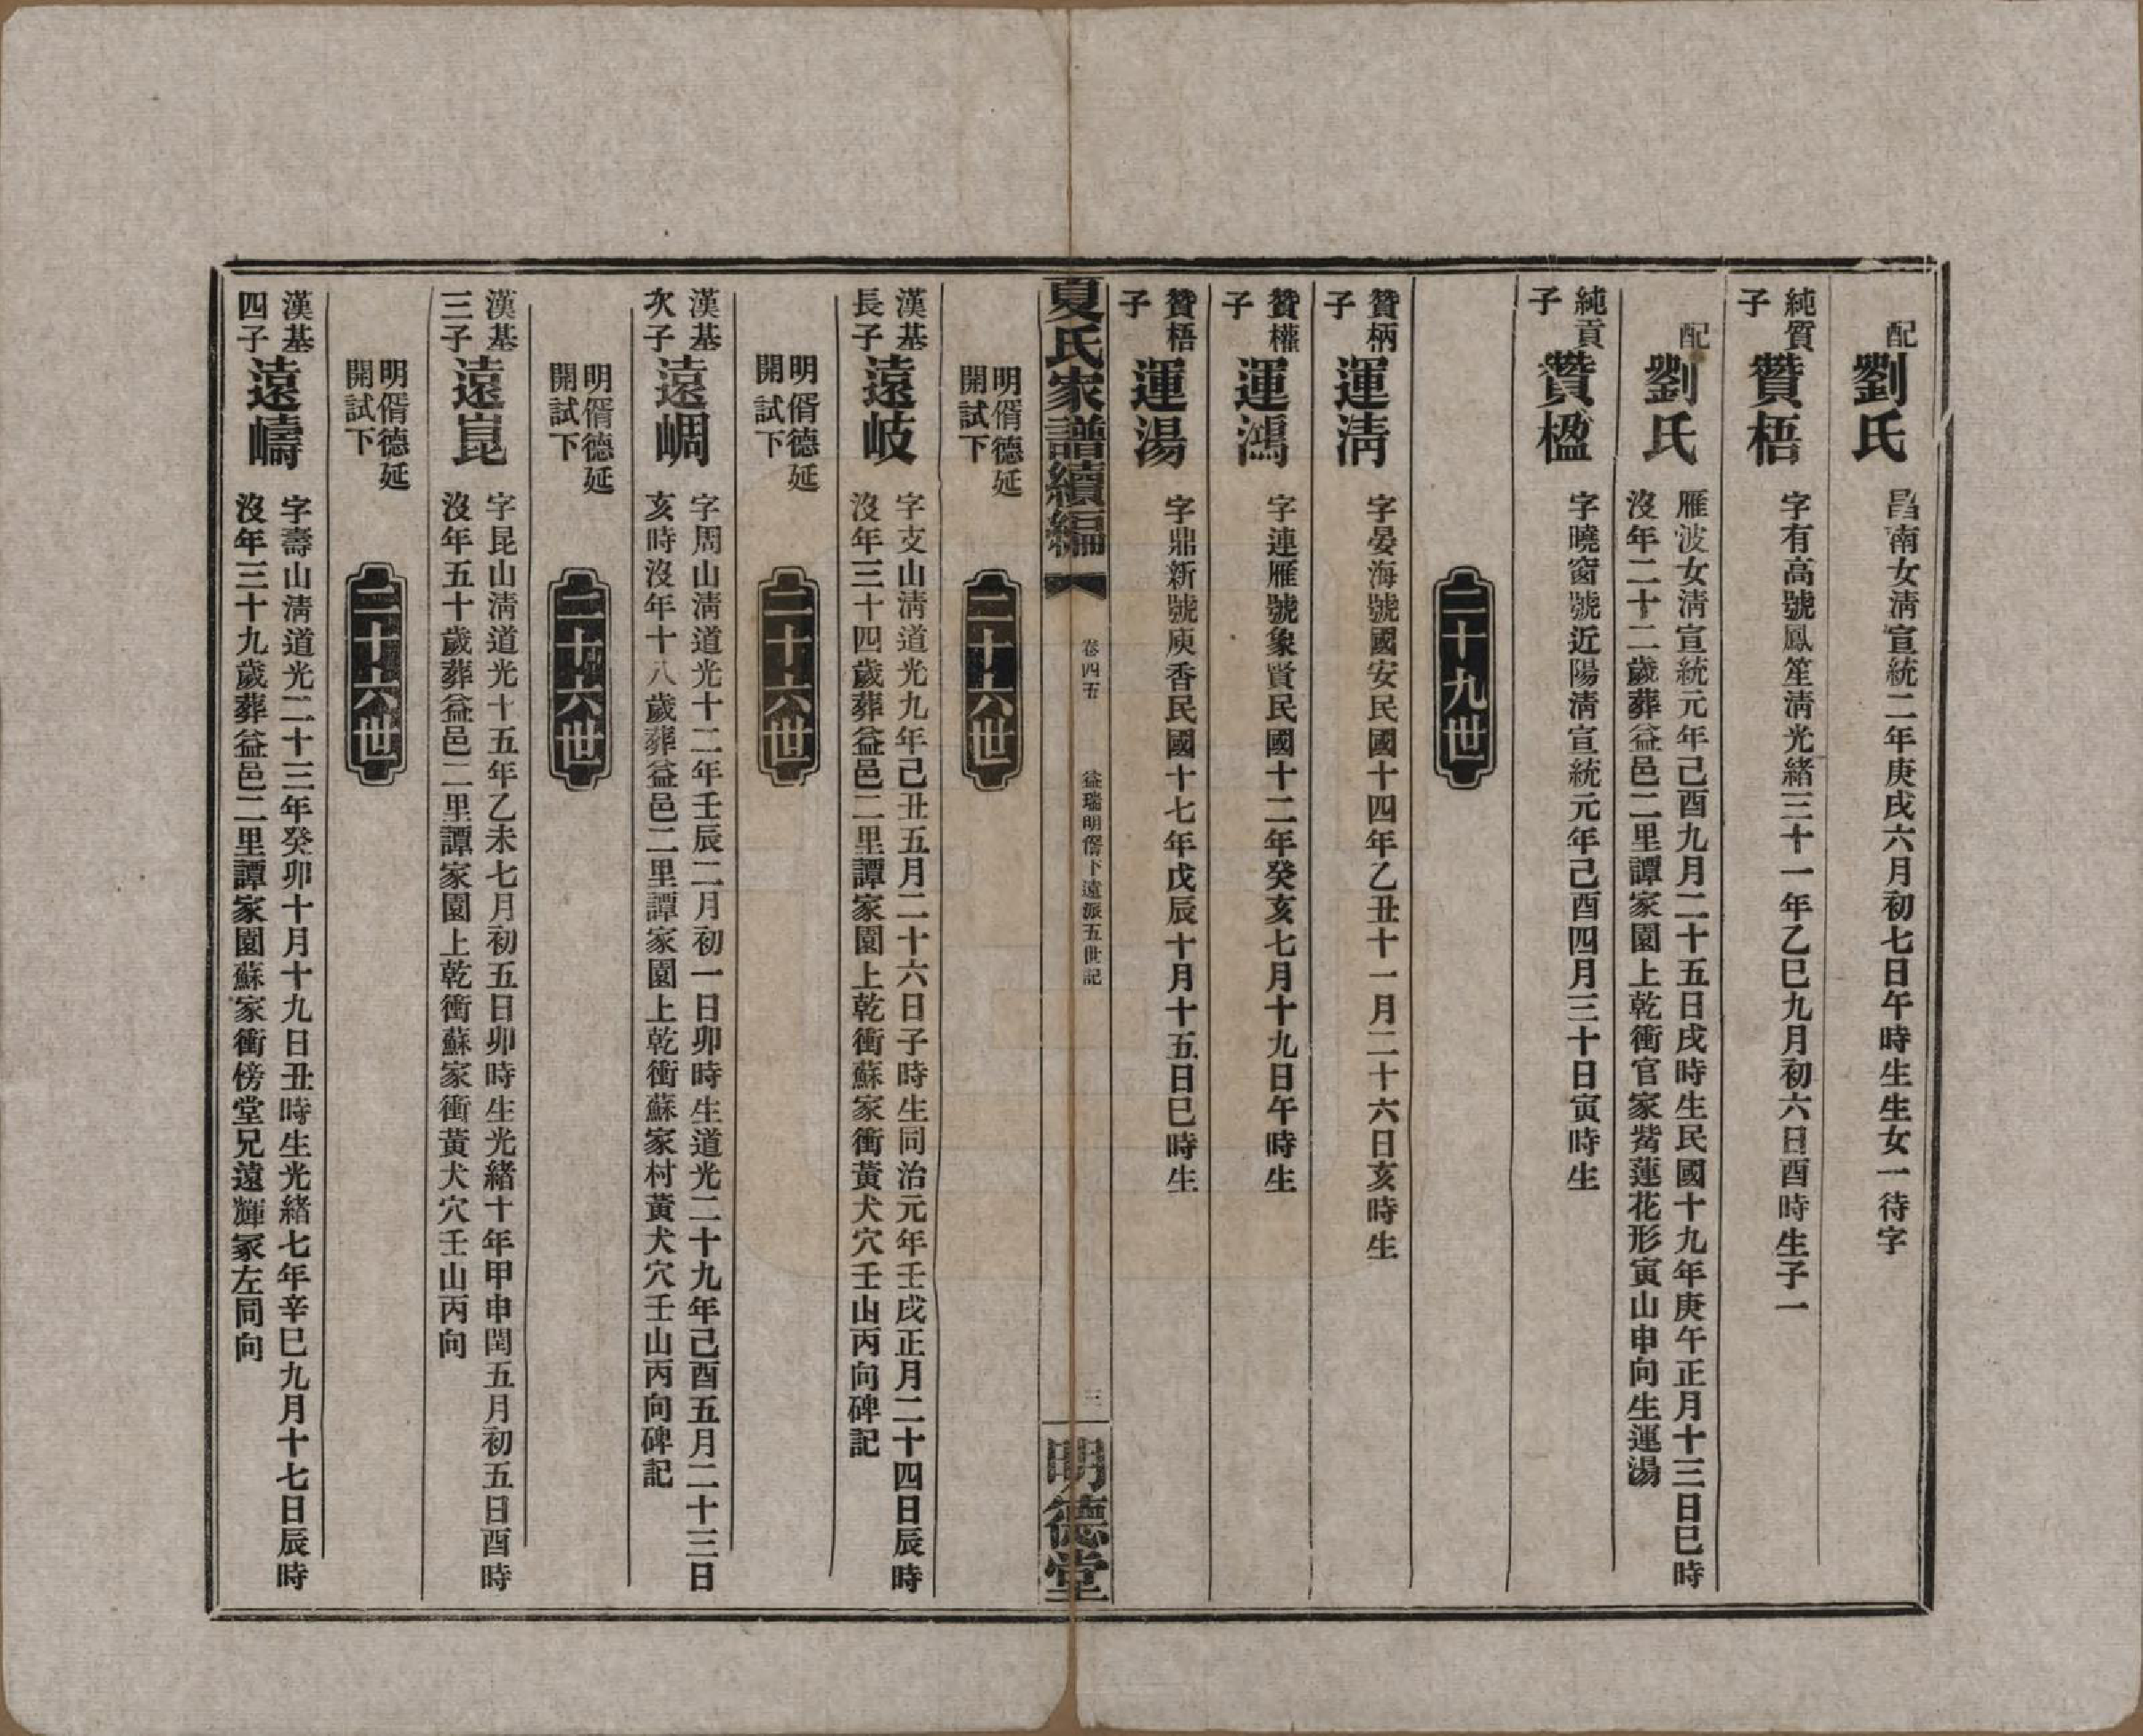 配劉氏 昌南女淸宣統二年庚戌六月初七日午時生生女一待字
純質子贊梧 字有高號鳳笙淸光緒三十一年乙巳九月初六日酉時生子一
配劉氏 雁波女淸宣統元年己酉九月二十五日戌時生民國十九年庚午正月十三日巳時
沒年二十二歲葬益邑二里譚家園上乾衝官家嘴蓮花形寅山申向生運湯
純貢子贊楹 字曉窗號近陽淸宣統元年己酉四月三十日寅時生
二十九世
贊柄子運淸 字晏海號國安民國十四年乙丑十一月二十六日亥時生
贊櫵子運鴻 字連雁號象賢民國十二年癸亥七月十九日午時生
贊梧子運湯 字鼎新號庾香民國十七年戊辰十月十五日巳時生
夏氏家譜續編 卷四五 益瑞明偦下遠派五世記 三 明德堂
明偦德延
開試下
二十六世
漢基長子遠岐 字支山淸道光九年己丑五月二十六日子時生同治元年壬戌正月二十四日辰時
沒年三十四歲葬益邑二里譚家園上乾衝蘇家衝黃犬穴壬山丙向碑記
明偦德延
開試下
二十六世
漢基次子遠峒 字周山淸道光十二年壬辰二月初一日卯時生道光二十九年己酉五月二十三日
亥時沒年十八歲葬益邑二里譚家園上乾衝蘇家村黃犬穴壬山丙向碑記
明偦德延
開試下
二十六世
漢基三子遠崑 字昆山淸道光十五年乙未七月初五日卯時生光緒十年甲申閏五月初五日酉時
沒年五十歲葬益邑二里譚家園上乾衝蘇家衝黃犬穴壬山丙向
明偦德延
開試下
二十六世
漢基四子遠嶹 字壽山淸道光二十三年癸卯十月十九日丑時生光緒七年辛巳九月十七日辰時
沒年三十九歲葬益邑二里譚家園蘇家衝傍堂兄遠輝冢左同向